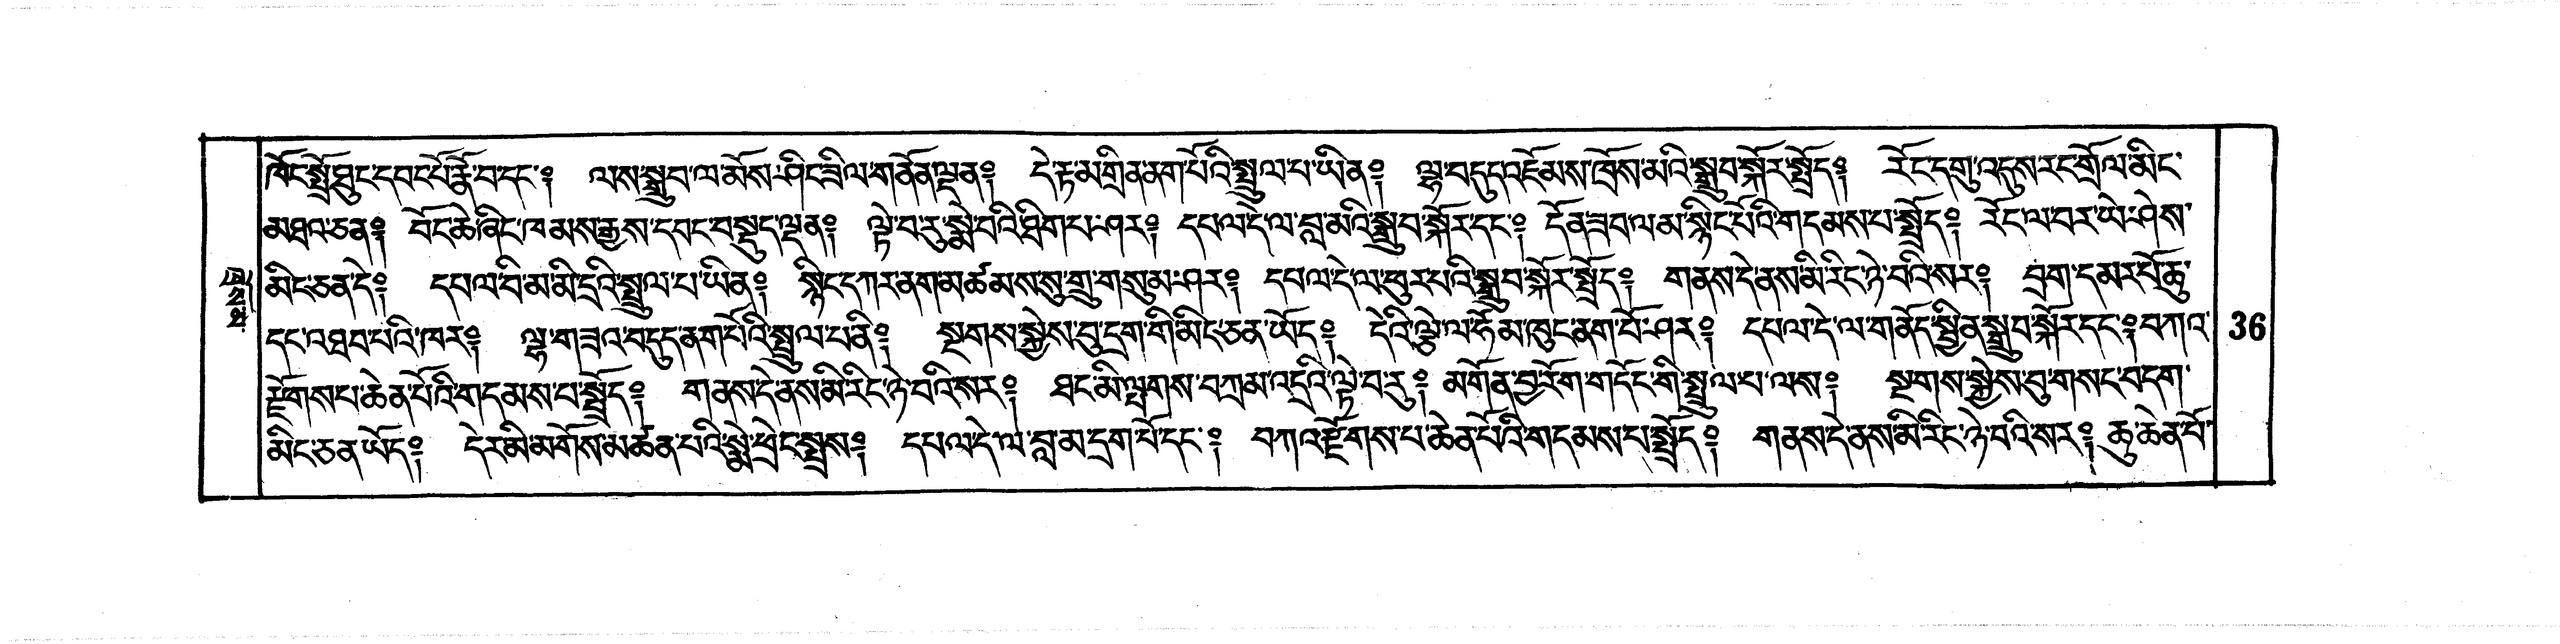 ཁོང་སྤྲོ་ཐུང་དབང་པོ་རྣོ་བ་དང་༔ ལས་སྒྲུབ་ལ་མོས་ཤིང་ཟིལ་གནོན་ལྡན༔ དེ་རྟ་མགྲིན་ནག་པོའི་སྤྲུལ་པ་ཡིན༔ ལྷ་བདུད་འཇོམས་ཁྲོས་མའི་སྒྲུབ་སྐོར་སྤྲོད༔ རོང་དགུ་འདུས་རང་གྲོལ་མིང་
མཐའ་ཅན༔ བོང་ཆེ་ཞིང་ཁམས་རྒྱས་དབང་བསྡུད་ལྡན༔ ལྟེ་བ་རུ་སྨེ་བའི་ཐིག་པ་ཤར༔ དཔལ་དེ་ལ་བླ་མའི་སྒྲུབ་སྐོར་དང་༔ དོན་ཟབ་ལམ་སྙིང་པོའི་གདམས་པ་སྤྲོད༔ རོང་ལ་བར་ཡེ་ཤེས་
མིང་ཅན་དེ༔ དཔལ་བི་མ་མི་ཏྲའི་སྤྲུལ་པ་ཡིན༔ སྙིང་དཀར་ནག་མཚམས་སུ་གྲུ་གསུམ་ཤར༔ དཔལ་དེ་ལ་ཕུར་པའི་སྒྲུབ་སྐོར་སྤྲོད༔ གནས་དེ་ནས་མི་རིང་ཉེ་བའི་སར༔ བྲག་དམར་པོ་ཆུ་
དང་འཐབ་པའི་ཁར༔ ལྷ་གཟའ་བདུད་ནག་པོའི་སྤྲུལ་པ་ནི༔ སྔགས་སྐྱེས་བུ་དྲག་གི་མིང་ཅན་ཡོད༔ དེའི་ལྕེ་ལ་ཧོམ་ཁུང་ནག་པོ་ཤར༔ དཔལ་དེ་ལ་གནོད་སྦྱིན་སྒྲུབ་སྐོར་དང་༔ བཀའ་
རྫོགས་པ་ཆེན་པོའི་གདམས་པ་སྤྲོད༔ གནས་དེ་ནས་མི་རིང་ཉེ་བའི་སར༔ ཐང་མི་ལྤགས་བཀྲམ་འདྲའི་ལྟེ་བ་རུ༔ མགོན་བྱ་རོག་གདོང་གི་སྤྲུལ་པ་ལས༔ སྔགས་སྐྱེས་བུ་གསང་བདག་
མིང་ཅན་ཡོད༔ དེར་མི་མགོས་མཚན་པའི་སྨེ་ཕྲེང་སྤྲས༔ དཔལ་དེ་ལ་བླ་མ་དྲག་པོ་དང་༔ བཀའ་རྫོགས་པ་ཆེན་པོའི་གདམས་པ་སྤྲོད༔ གནས་དེ་ནས་མི་རིང་ཉེ་བའི་སར༔ ཆུ་ཆེན་པོ་
36